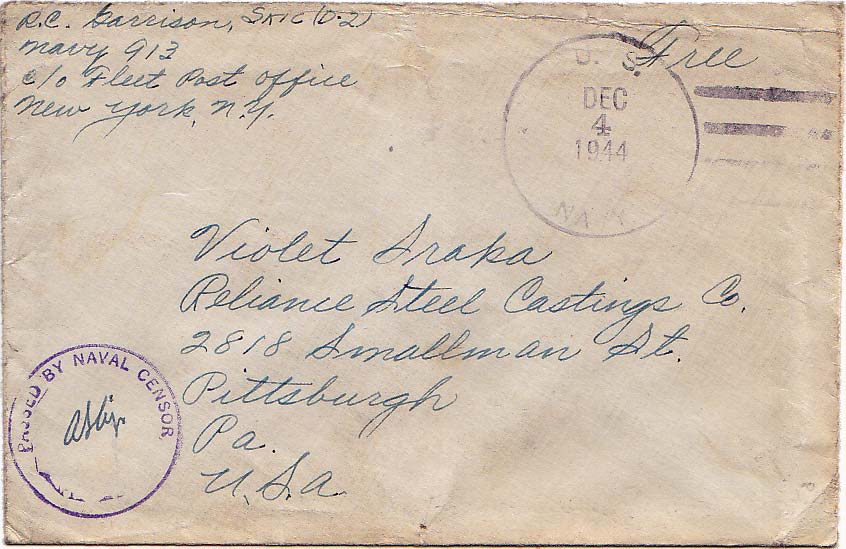 R.C. Garrison, SK1C (D-2)
Navy 913
c/o Fleet Post Office
New York, N.Y.
Free
U. S.
DEC
4
1944
NAVY
Violet Sraka
Reliance Steel Castings Co.
2818 Smallman St.
Pittsburgh
Pa.
U.S.A
PASSED BY NAVAL CENSOR